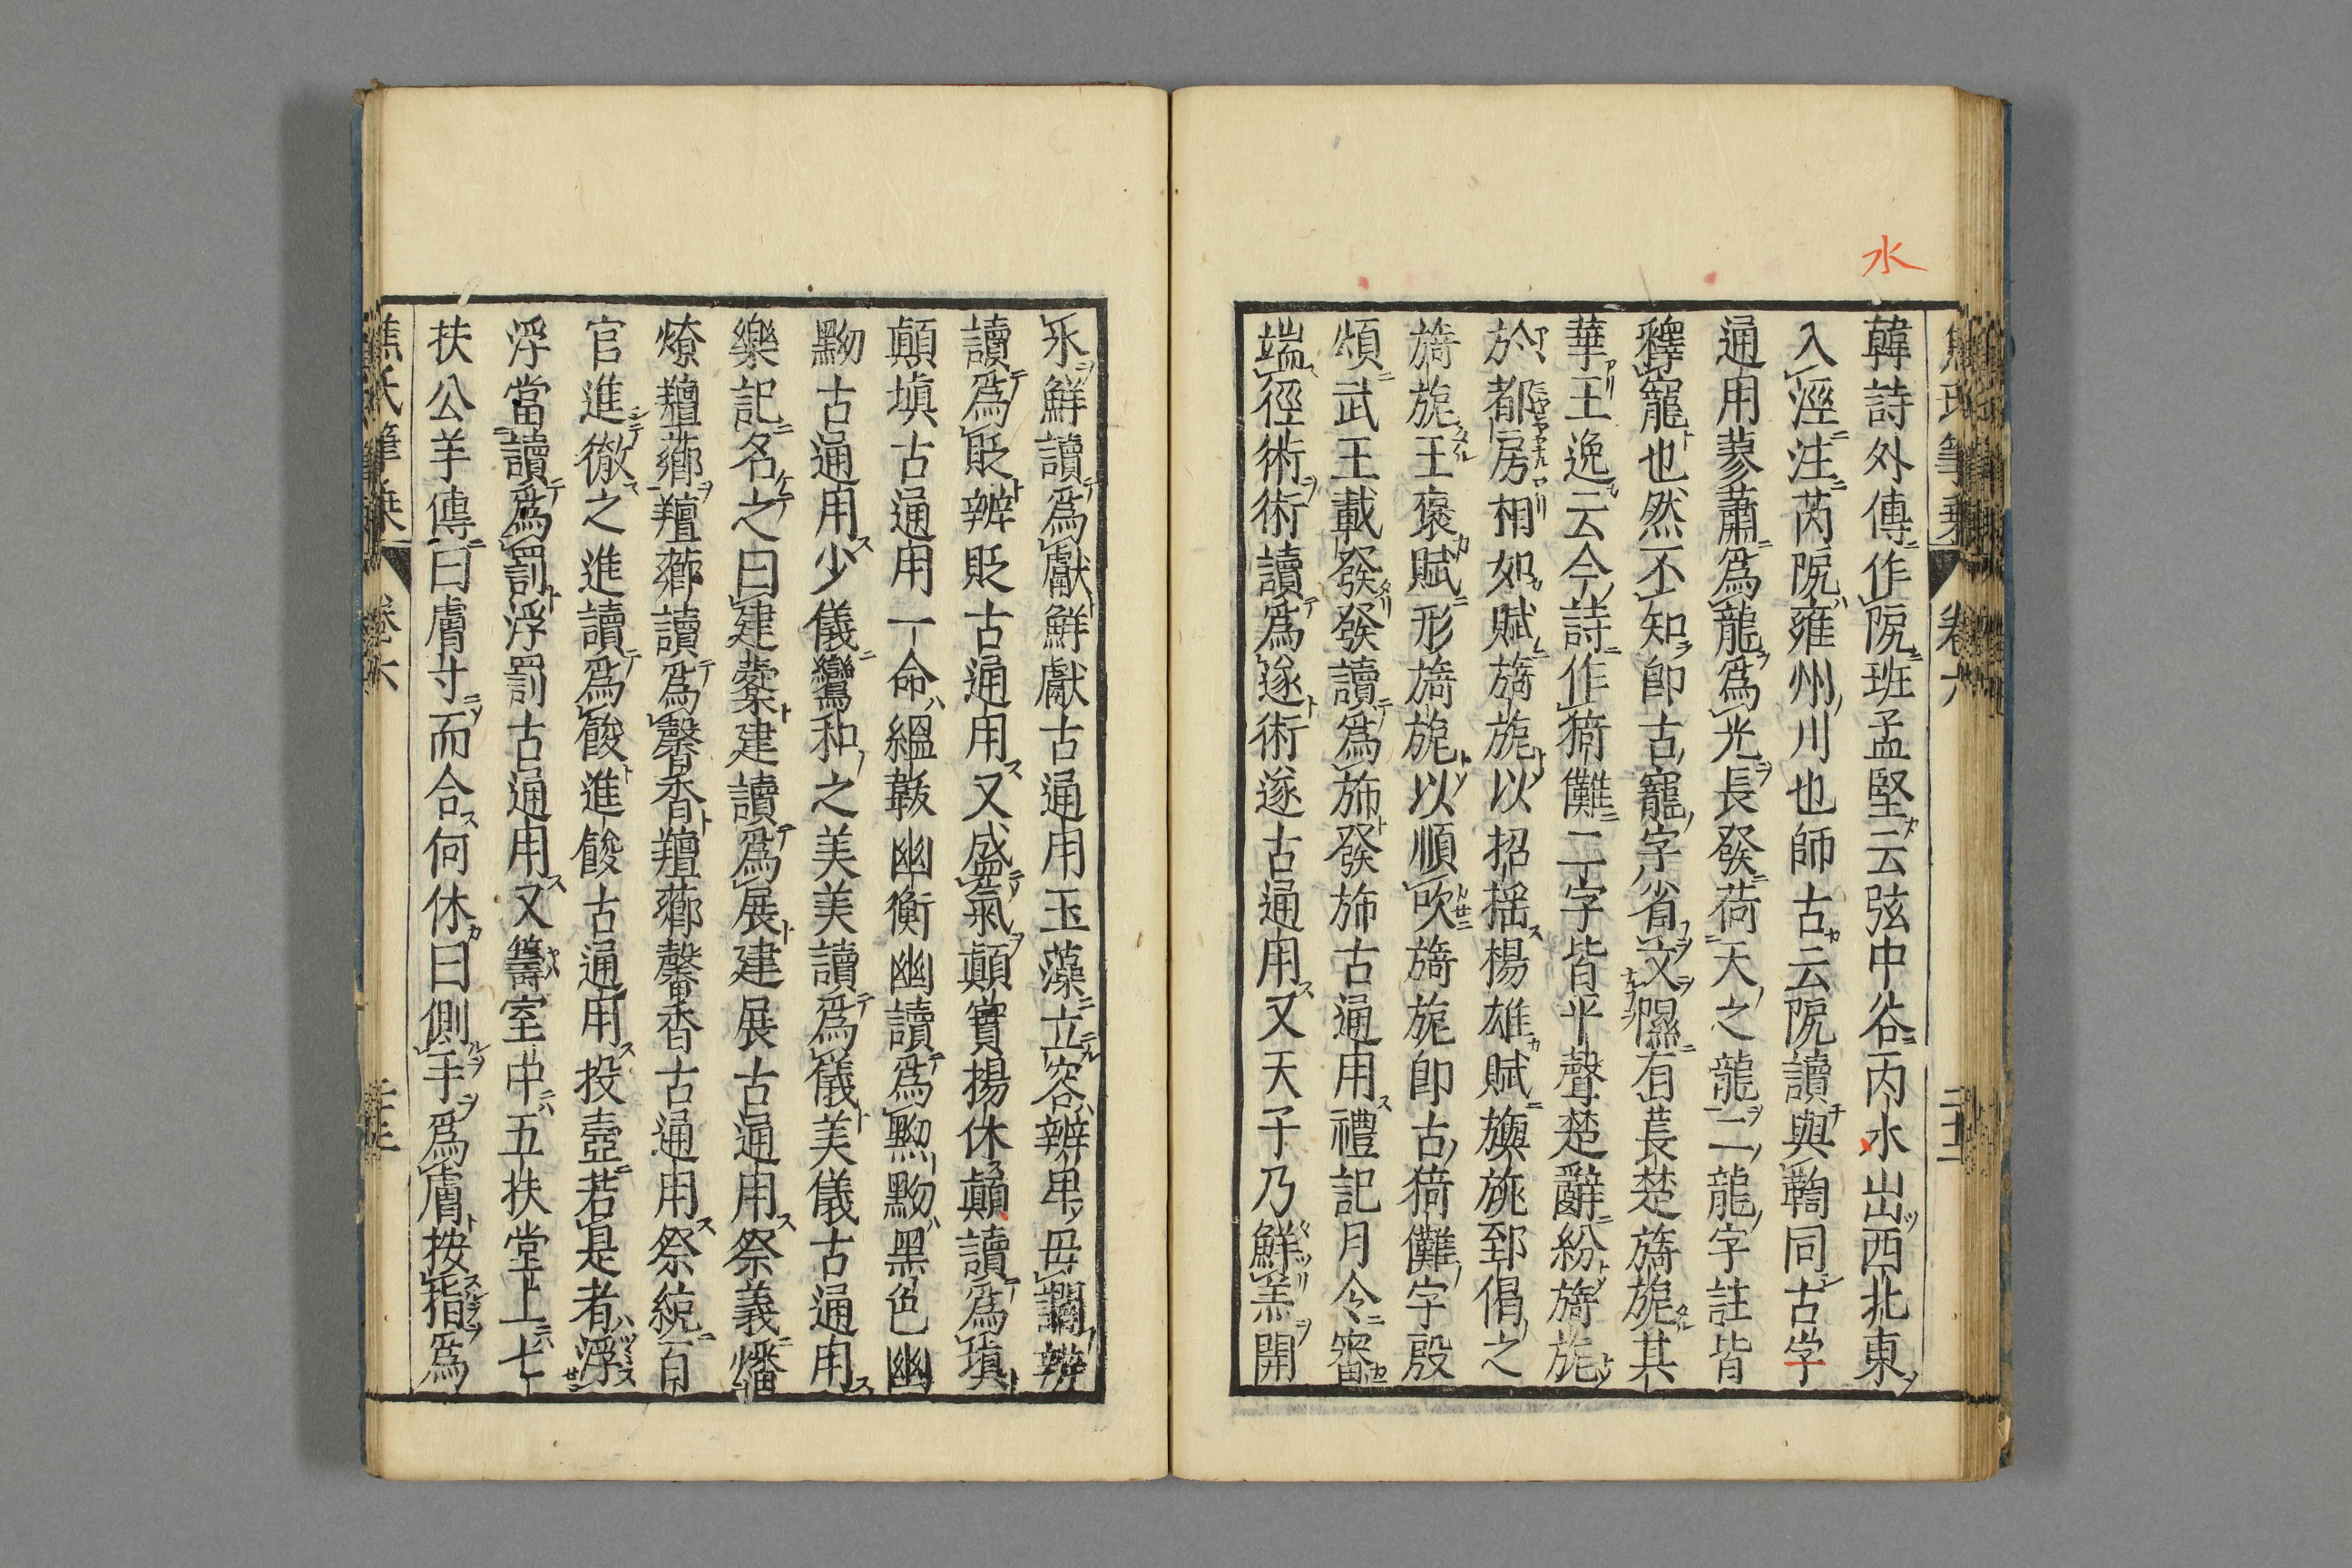 水
韓詩外傳作阮班孟堅云弦中谷丙水出西北東
入涇注芮阮雍州川也師古云阮讀與鞫同古学
通用蓼蕭爲龍爲光長發荷天之龍二龍字註皆
釋寵也然不知卽古寵字省文隰有萇楚旖旎其
華王逸云今詩作猗儺二字皆平聲楚辭紛旖旎
於都房相如賦旖旎以招揺楊雄賦旟旐郅偈之
旖旎王褒賦形旖旎以順吹旖旎卽古猗儺字殷
頌武王載發發讀爲斾發斾古通用禮記月令審
端徑術術讀爲遂術遂古通用又天子乃鮮羔開
氷鮮讀爲獻鮮獻古通用玉藻立容辨卑毋讇辨
讀爲貶辨貶古通用又盛氣顚實揚休顚讀爲塡
顚塡古通用一命縕韍幽衡幽讀爲黝黝黑色幽
黝古通用少儀鸞和之美美讀爲儀美儀古通用
樂記名之曰建櫜建讀爲展建展古通用祭義燔
燎羶薌羶薌讀爲馨香羶薌馨香古通用祭統百
官進徹之進讀爲餕進餕古通用投壺若是者浮
浮當讀爲罰浮罰古通用又籌室中五扶堂上七
扶公羊傳曰膚寸而合何休曰側手爲膚按指爲
焦氏筆乗 卷六